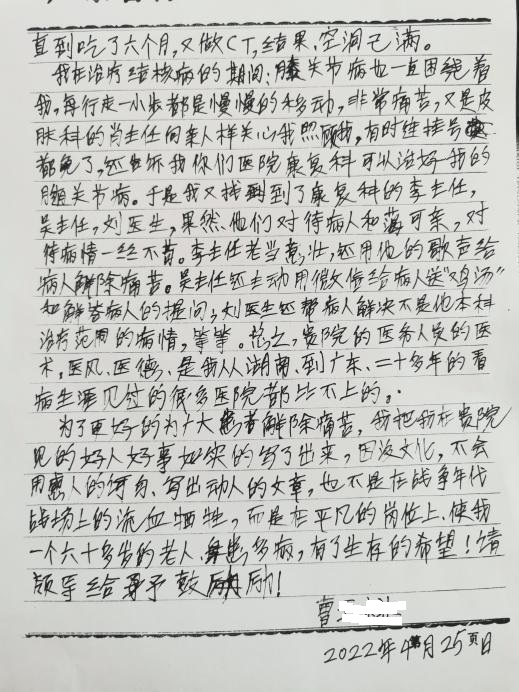 直到吃了六个月,又做CT,结果、空洞已满。
我在治疗结核病的期间,膝关节病也一直困绕着
我,每行走一小步都是慢慢的移动,非常痛苦,又是皮
肤科的肖主任向亲人样关心我照顾我,有时连挂号
都免了,还告诉我你们医院康复科可以治好我的
膝关节病。于是我又找到了康复科的李主任,
吴主任,刘医生,果然、他们对待病人和蔼可亲,对
待病情一丝不苟。李主任老当益壮,还用他的歌声给
病人解除痛苦。吴主任还主动用微信给病人送"鸡汤"
和解答病人的提问,刘医生还帮病人解决不是他本科
治疗范围的病情,等等。总之,贵院的医务人员的医
术,医风、医德、是我从湖南、到广东、二十多年的看
病生涯见过的很多医院都比不上的。
为了更好的为广大患者解除痛苦,我把我在贵院
见的好人好事如实的写了出来,因没文化,不会
用惠人的词句、写出动人的文章,也不是在战争年代
战场上的流血牺牲,而是在平凡的岗位上、使我
一个六十多岁的老人、身患多病,有了生存的希望!请
领导给予鼓励!
曹
2022年4月25日